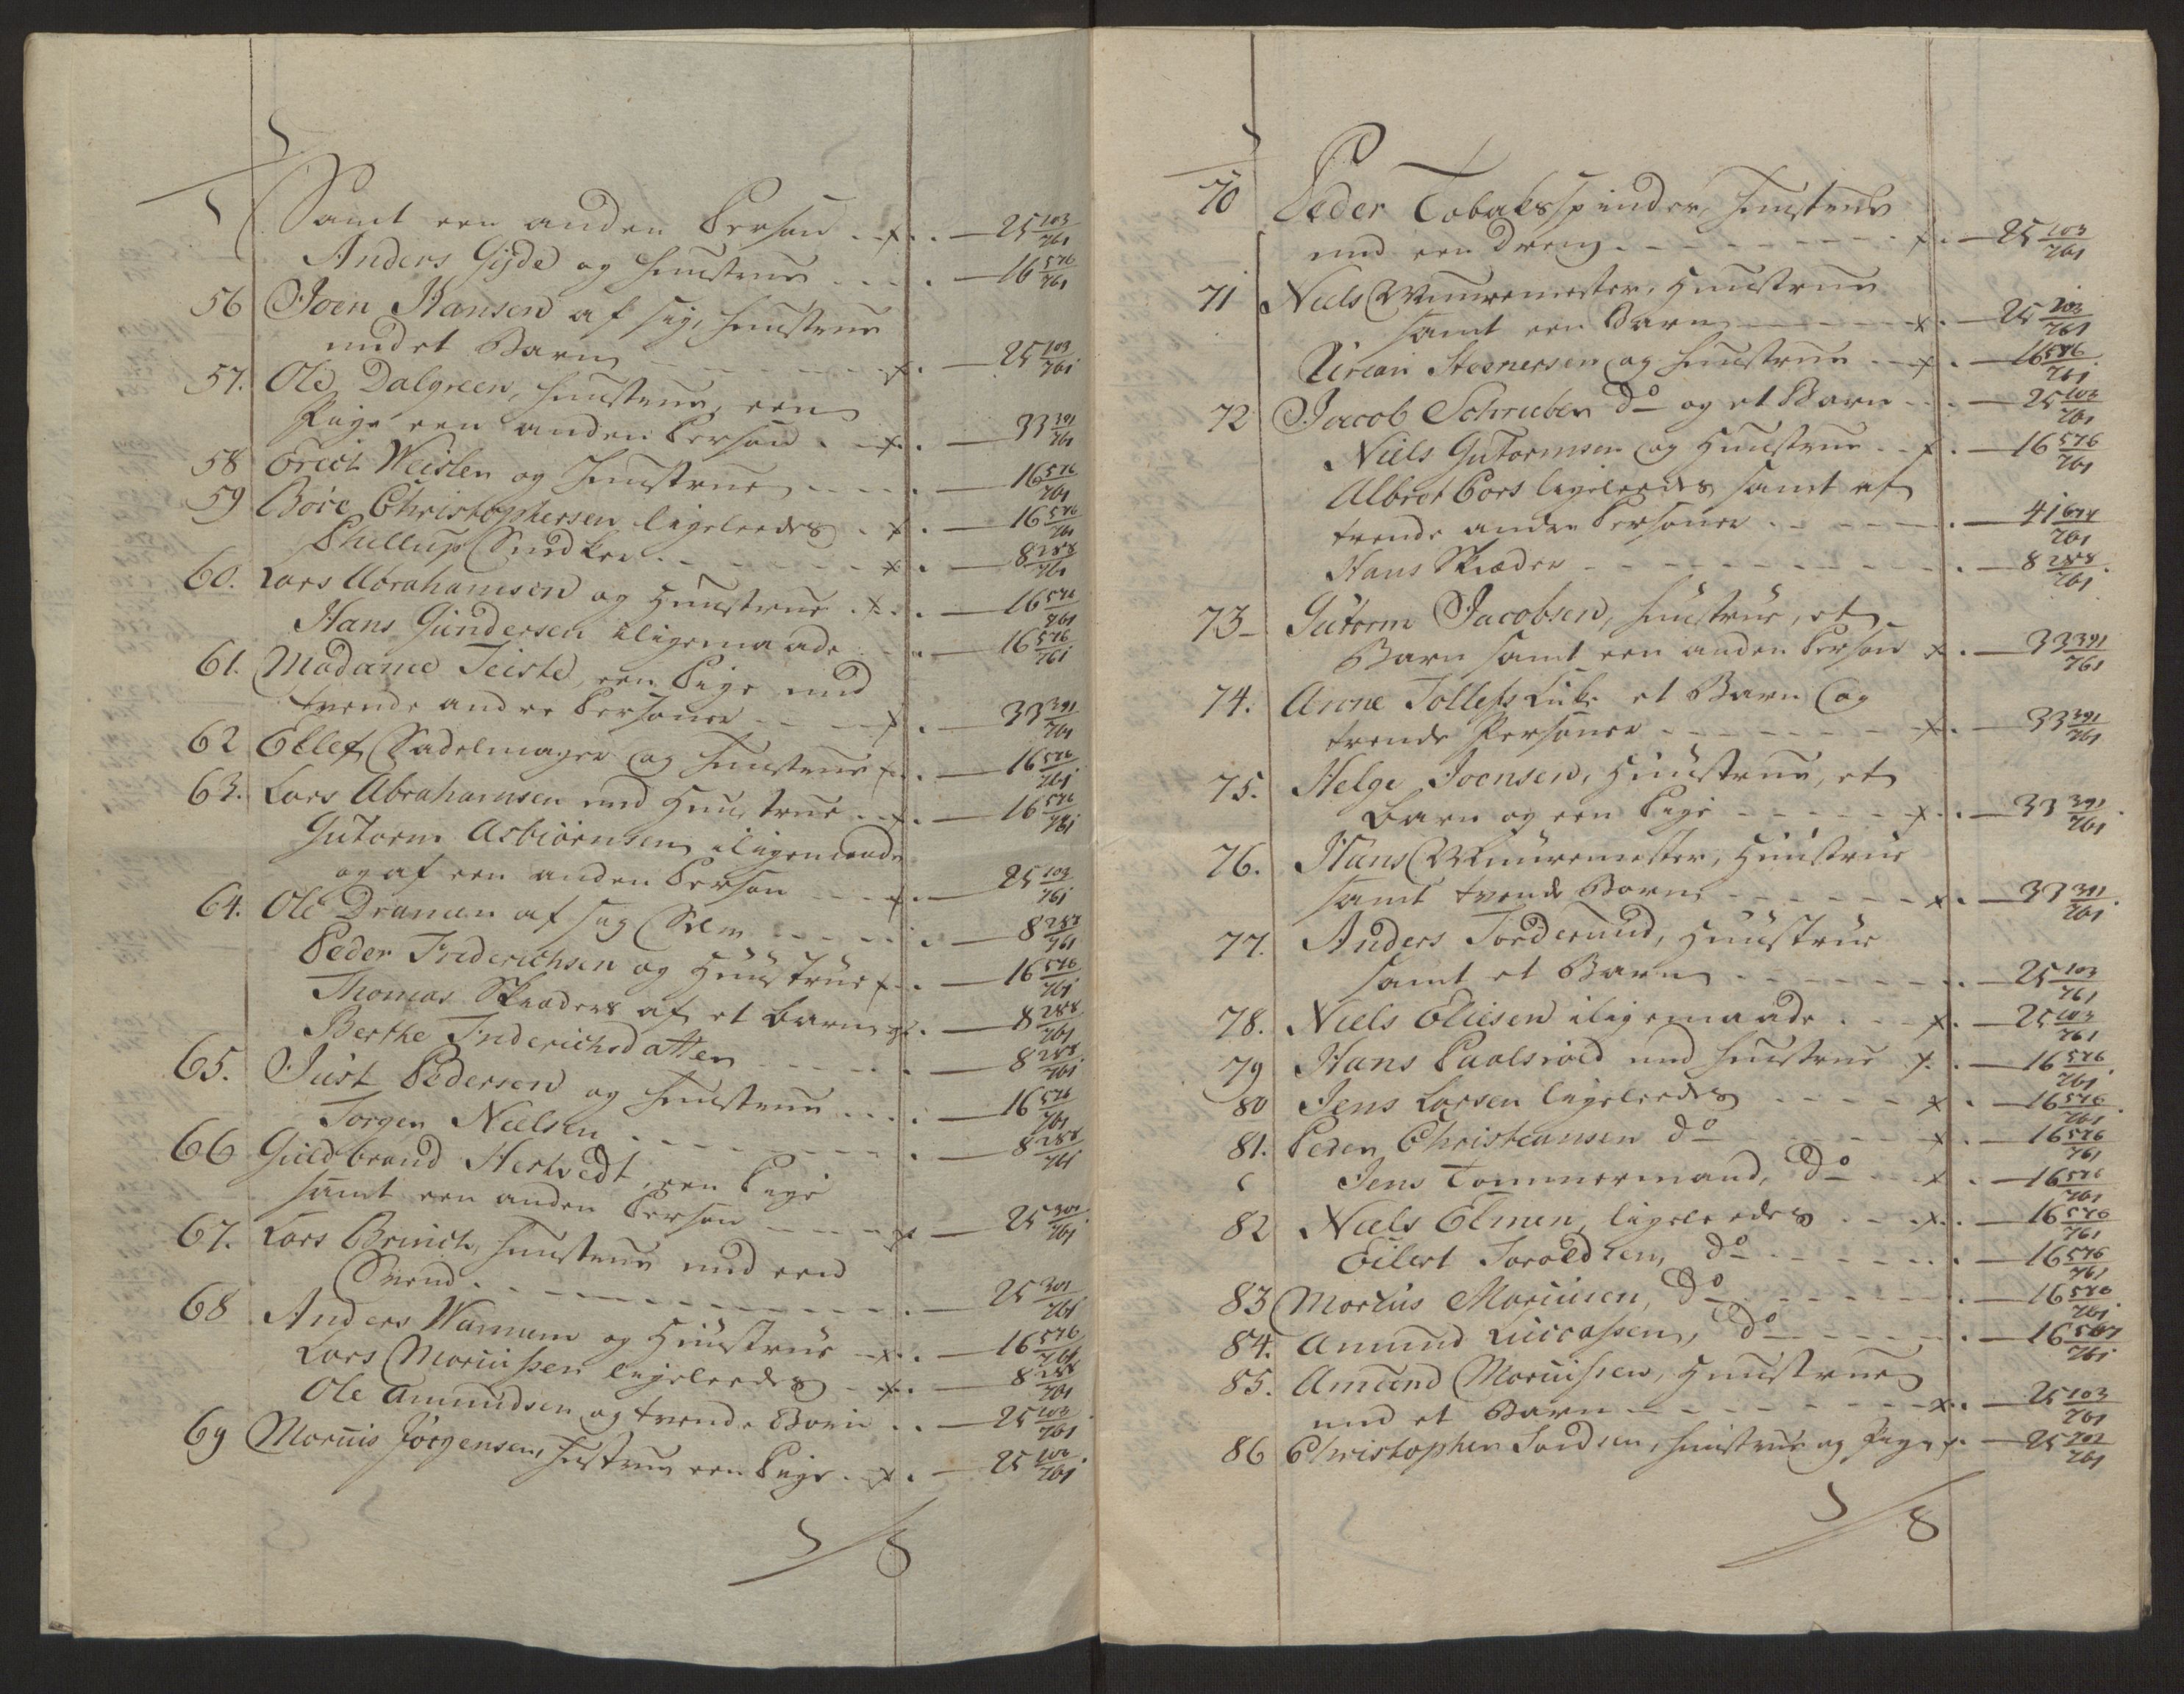 Samt een anden Person . x . . — 25 103/761
Anders Gyde og Huustrue . . . . — 16 576/761
56 Joen Hansen af sig, Huustrue
med et Barn - - - - x . — 25 103/761
57. Ole Dalgreen, Huustrue, een
Pige een anden Person . x . — 33 391/761
58 Erich Weislen og Huustrue - - - . — 16 576/761
59 Böre Christophersen ligeleedes . x . — 16 576/761
Phillup Snedker - - - - x . — 8 288/761
60. Lars Abrahamsen og Huustrue . x . . — 16 576/761
Hans Gundersen iligemaade . — 16 576/761
61. Madame Teiste, een Pige med
tvende andre Personer - - - x . — 33 391/761
62 Ellef Sadelmager og Huustrue x . — 16 576/761
63. Lars Abrahamsen med Huustrue . x . — 16 576/761
Gutorm Asbiörnsen iligemaade
og af een anden Person - - x . — 25 103/761
64. Ole Dramen af sig Selv - - - . — 8 288/761
Peder Friderichsen og Huustrue x . — 16 576/761
Thomas Skræders af et Barn x . — 8 288/761
Berthe Friderichsdatter - - - . — 8 288/761
65. Just Pedersen og Huustrue . . . — 16 576/761
Torger Nielsen - - - - - . — 8 288/761
66 Guldbrand Hertvedt, een Pige
samt een anden Person - - - x — 25 301/761
67. Lars Brinch, Huustrue med een
Svend - - - - - - - . — 25 301/761
68 Anders Wammen og Huustrue - x . . — 16 576/761
Lars Moriussen ligeleedes - x . — 8 288/761
Ole Amundsen og tvende Börn . . — 25 103/761
69 Morius Jörgensen, Hustrue een Pige . x . — 25 103/761
8
70 Peder Tobaksspinder, Huustrue
med een Dreng - - - - - x . — 25 103/761
71 Niels Muuremester, Huustrue
samt een Barn - - - - x . — 25 103/761
Jürian Steenersen og Huustrue . x . — 16 576/761
72 Jacob Schrueber do og et Barn - . — 25 103/761
Niels Gutormsen og Huustrue . . x . — 16 576/761
Albrot Cors ligeleedes samt af
trende andre Personer - - - - . — 41 674/761
Hans Skræder - - - - - - . — 8 288/761
73 - Gutorm Jacobsen, Huustrue, et
Barn samt een anden Person x . — 33 391/761
74. Anne Tollefs Enke et Barn og
trende Personer - - - - - x . — 33 391/761
75. Helge Joensen, Huustrue, et
Barn og een Pige - - - - x . . — 33 391/761
76. Hans Muuremester, Huustrue
samt tvende Börn - - - - x . — 33 391/761
77. Anders Torderund, Huustrue
samt et Barn - - - - - . . — 25 103/761
78. Niels Eliesen iligemaade . - x . — 25 103/761
79 Hans Paalsröld med Huustrue x . . — 16 576/761
80 Jens Larsen ligeleedes - - - x . — 16 576/761
81. Peder Christiansen do - - - x . — 16 576/761
Jens Tommermand, do - - x . — 16 576/761
82 Niels Elmen, ligeleedes . - x . . — 16 576/761
Eilert Toroldsen, do - - - . . — 16 576/761
83 Morius Moriusen, do - - - . — 16 576/761
84. Amund Luccassen, do - - - . — 16 567/761
85. Amund Moriussen, Huustrue
med et Barn - - - - - x . — 25 103/761
86 Christopher Tordsen, Huustrue og Pige x . — 25 202/761
8